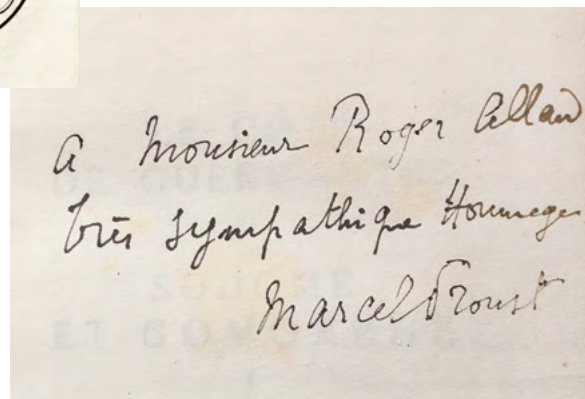 A Monsieur Roger Allard
très sympathique Hommage
Marcel Proust